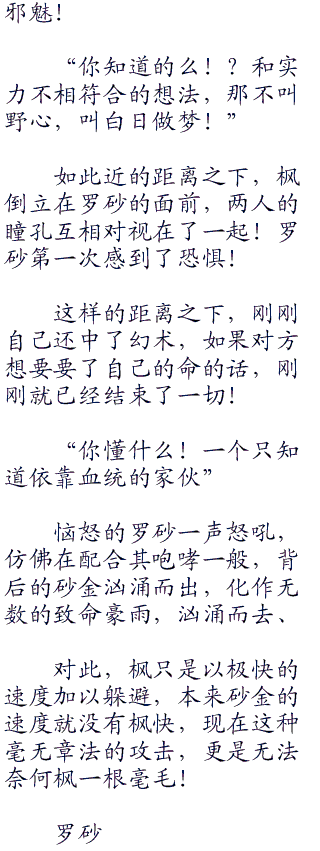 邪魅！
“你知道的么！？和实
力不相符合的想法，那不叫
野心，叫白日做梦！”
如此近的距离之下，枫
倒立在罗砂的面前，两人的
瞳孔互相对视在了一起！罗
砂第一次感到了恐惧！
这样的距离之下，刚刚
自己还中了幻术，如果对方
想要要了自己的命的话，刚
刚就已经结束了一切！
“你懂什么！一个只知
道依靠血统的家伙”
恼怒的罗砂一声怒吼，
仿佛在配合其咆哮一般，背
后的砂金汹涌而出，化作无
数的致命豪雨，汹涌而去、
对此，枫只是以极快的
速度加以躲避，本来砂金的
速度就没有枫快，现在这种
毫无章法的攻击，更是无法
奈何枫一根毫毛！
罗砂